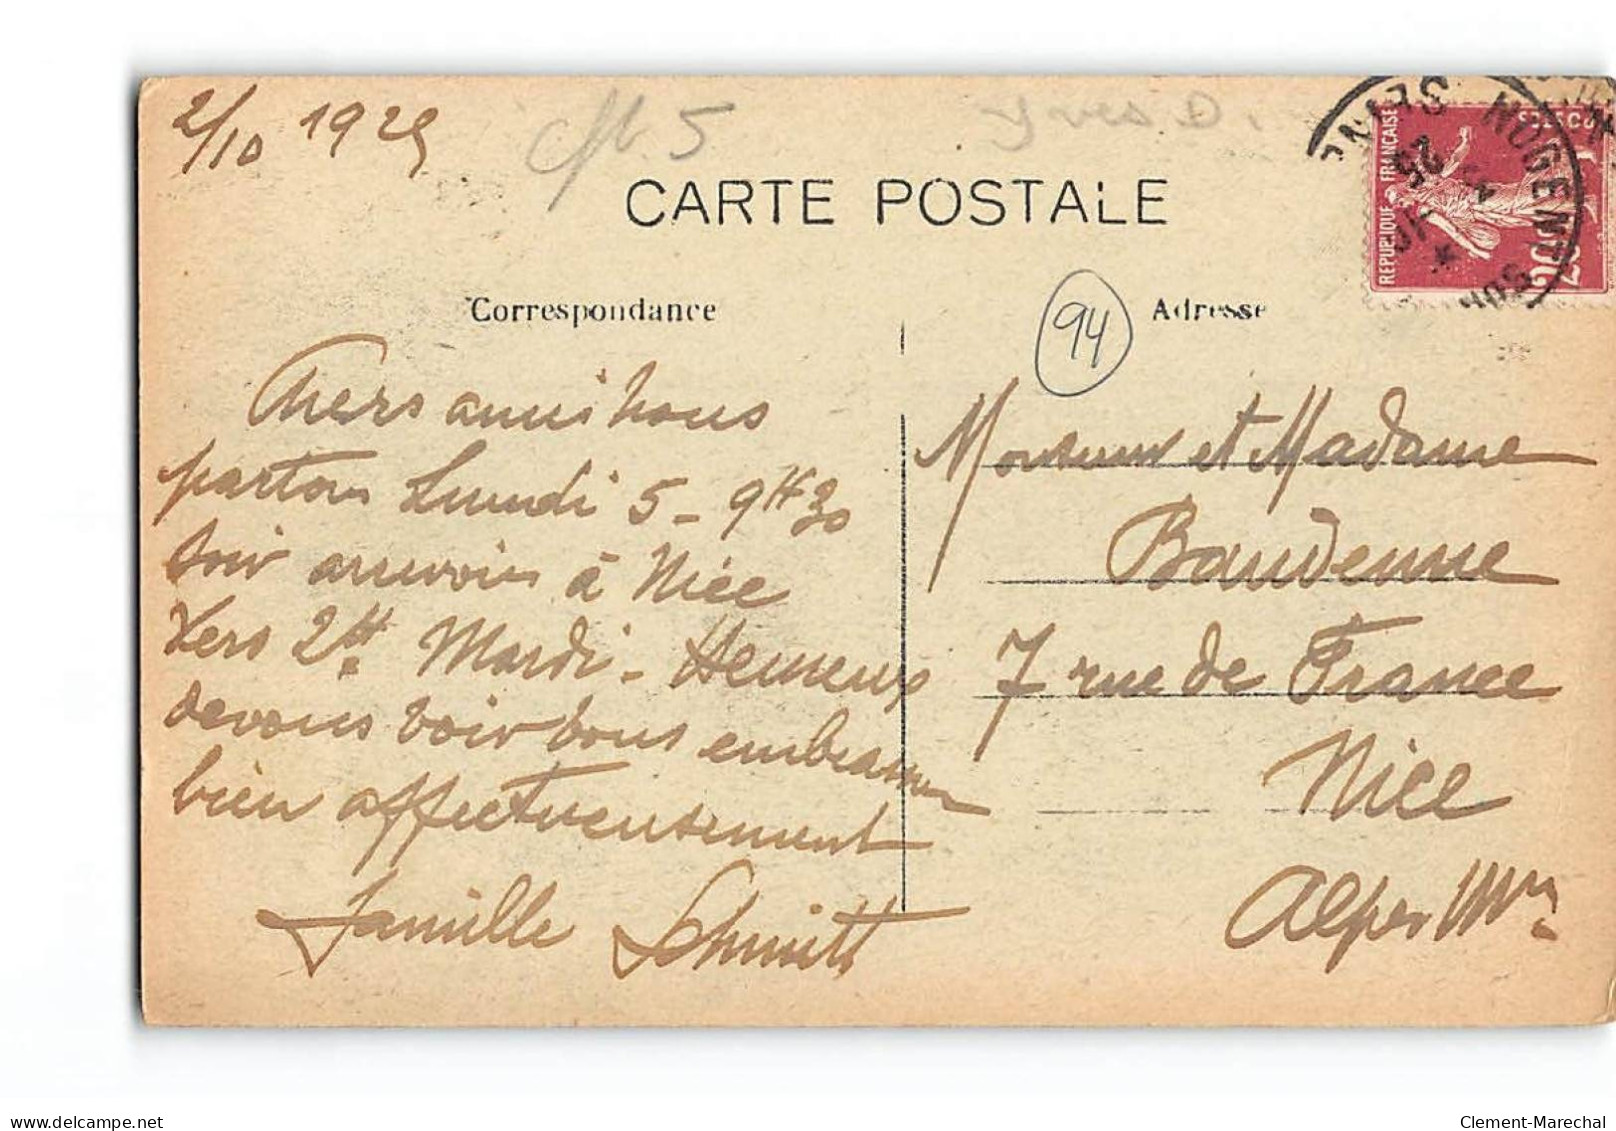 2/10 1925
5
Yves D.
CARTE POSTALE
REPUBLIQUE FRANCAISE
20c
NOGENT SUR SEINE
25
Correspondance
94
Adresse
Chers amis nous
partons Lundi 5 - 9H30
soir arrivons à Nice
vers 2H. Mardi - Heureux
devons voir vous embrasser
bien affectueusement
famille Schmitt
Monsieur et Madame
Baudenne
7 rue de France
Nice
Alpes Mmes
delcampe.net
Clement-Marechal